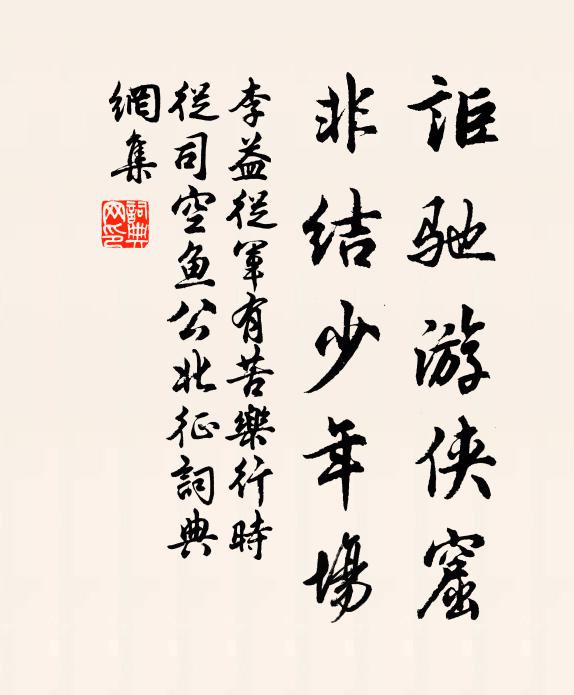 詎馳游侠窟
非结少年場
李益從軍有苦樂行時
從司空魚公北征詞典
網集
詞典网印